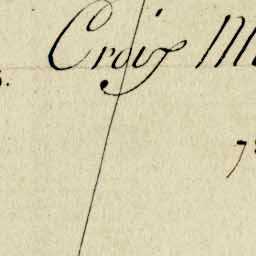 Croix M
7